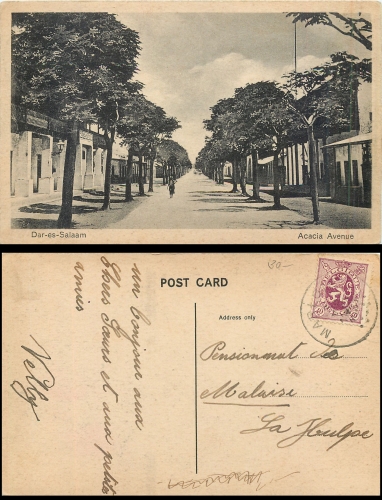 Dar-es-Salaam
Acacia Avenue
POST CARD
Address only
un bonjour aux
chers Sœurs et aux petites
amies
Pensionnat des
Malaise
La Hulpe